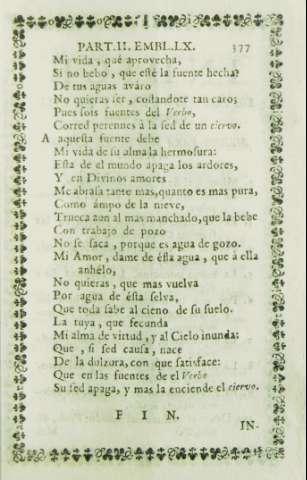 PART.II. EMBL.LX. 377
Mi vida, què aprovecha,
Si no bebo, que estè la fuente hecha?
De tus aguas avàro
No quieras ser, costandote tan caro;
Pues sois fuentes del Verbo,
Corred perennes à la sed de un ciervo.
A aquesta fuente debe
Mi vida de su alma la hermosura:
Esta de el mundo apaga los ardores,
Y en Divinos amores
Me abrasa tanto mas, quanto es mas pura,
Como ámpo de la nieve,
Trueca aun al mas manchado, que la bebe
Con trabajo de pozo
No se saca, porque es agua de gozo.
Mi Amor, dame de ésta agua, que à ella
anhélo,
No quieras, que mas vuelva
Por agua de ésta selva,
Que toda sabe al cieno de su suelo.
La tuya, que fecunda
Mi alma de virtud, y al Cielo inunda:
Que, si sed causa, nace
De la dulzura, con que satisface:
Que en las fuentes de el Verbo
Su sed apaga, y mas la enciende el ciervo.
F I N.
IN-